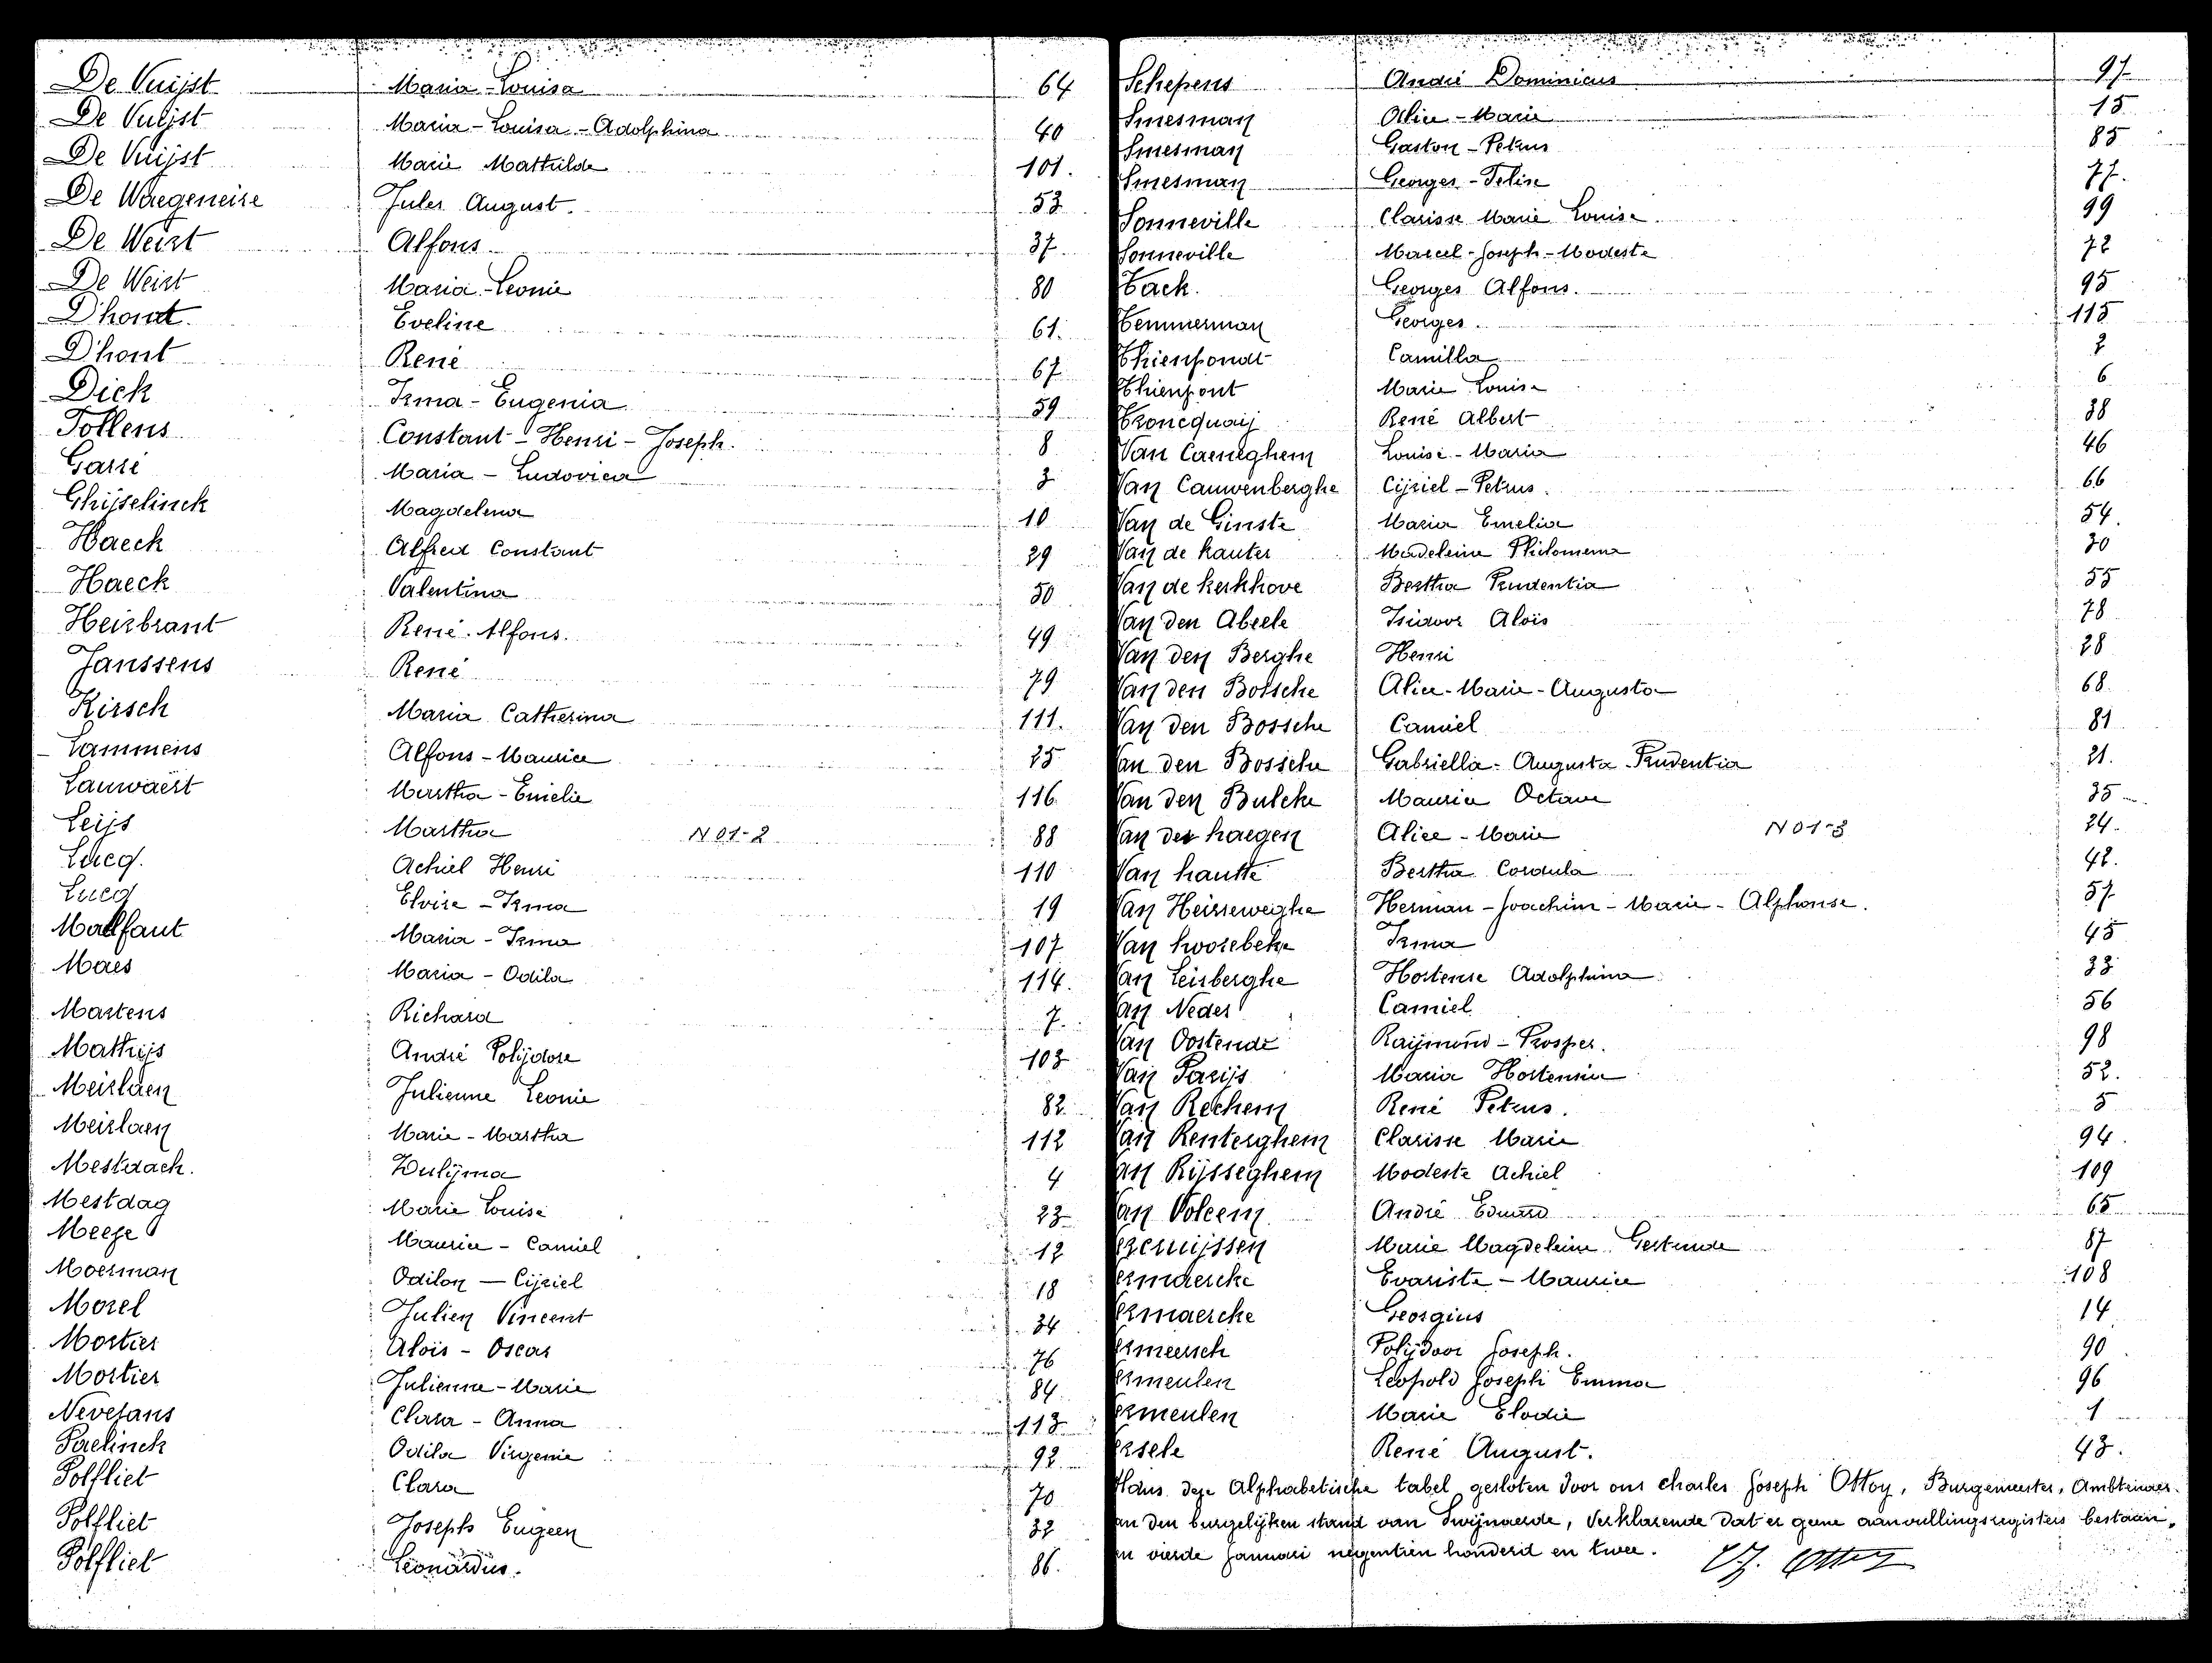 De Vuijst Maria-Louisa 64
De Vuijst Maria-Louisa-Adolphina 40
De Vuijst Marie Mathilde 101.
De Waegeneire Jules August. 53
De Weirt Alfons 37
De Weirt Maria-Leonie 80
D'hondt Eveline 61.
D'hont René 67
Dick Irma-Eugenia 59
Follens Constant-Henri-Joseph. 8
Garré Maria-Ludovica 3
Ghijselinck Magdelena 10
Haeck Alfred Constant 29
Haeck Valentina 50
Heirbrant René Alfons. 49
Janssens René 79
Kirsch Maria Catherina 111.
Lammens Alfons-Maurice 25
Lauwaert Martha-Emelie 116.
Leijs Martha N01-2 88
Lucq. Achiel Henri 110
Lucq Elvire-Irma 19
Malfaut Maria-Irma 107
Maes Maria-Odila 114.
Martens Richard 7.
Mathijs André Polijdore 103
Meirlaen Julienne Leonie 82.
Meirlaen Marie-Martha 112
Mestdach. Zulijma 4
Mestdag Marie Louise 23
Meege Maurice-Camiel 12
Moerman Odilon-Cijriel 18
Morel Julien Vincent 34
Mortier Aloïs-Oscar 76
Mortier Julienne-Marie 84
Nevejans Clara-Anna 113
Paelinck Odila Virgenie 92
Polfliet Clara 70
Polfliet Joseph Eugeen 32
Polfliet Leonardus. 86.
Schepens André Dominicus 97
Smesman Alice-Marie 15
Smesman Gaston-Petrus 85
Smesman Georges-Felix 77.
Sonneville Clarisse Marie Louise. 99
Sonneville Marcel-Joseph-Modeste 72
Tack. Georges Alfons. 95
Temmerman Georges. 115
Thienpondt Camilla 2
Thienpont Marie Louise 6
Troncquaij René Albert 38
Van Caeneghem Louise-Maria 46
Van Cauwenberghe Cijriel-Petrus. 66
Van de Ginste Maria Emelia 54.
Van de kauter Madeleine Philomena 30
Van de kerkhove Bertha Prudentia 55
Van den Abeele Isidoor Aloïs 78
Van den Berghe Henri 28
Van den Bossche Alice-Marie-Augusta 68
Van den Bossche Camiel 81
Van den Bossche Gabriella-Augusta-Prudentia 21.
Van den Bulcke Maurice Octave 35
Van der haegen Alice-Marie N01-3 24.
Van hautte Bertha Cordula 42.
Van Heirseweghe Herman-Joachim-Marie-Alphonse. 57
Van hoorebeke Irma 45
Van Leirberghe Hortense Adolphina 33
Van Neder Camiel 56
Van Oostende Raijmond-Prosper. 98
Van Parijs Maria Hortensia 52.
Van Rechem René Petrus. 5
Van Renterghem Clarisse Marie 94.
Van Rijsseghem Modeste Achiel 109
Van Volcem André Eduard 65
Vercruijssen Marie Magdeleine Gertrude 87
Vermaercke Evariste-Maurice 108
Vermaercke Georgius 14
Vermeersch Polijdoor Joseph. 90
Vermeulen Leopold Joseph Emma 96
Vermeulen Marie Elodie 1
Versele René August. 43.
Aldus deze Alphabetische tabel gesloten door ons Charles Joseph Ottoy, Burgemeester, Ambtenaer
van den burgelijken stand van Swijnaerde, verklarende dat er geene aanvullingsregisters bestaan,
den vierde Januari negentien honderd en twee. Ch. J. Ottoy